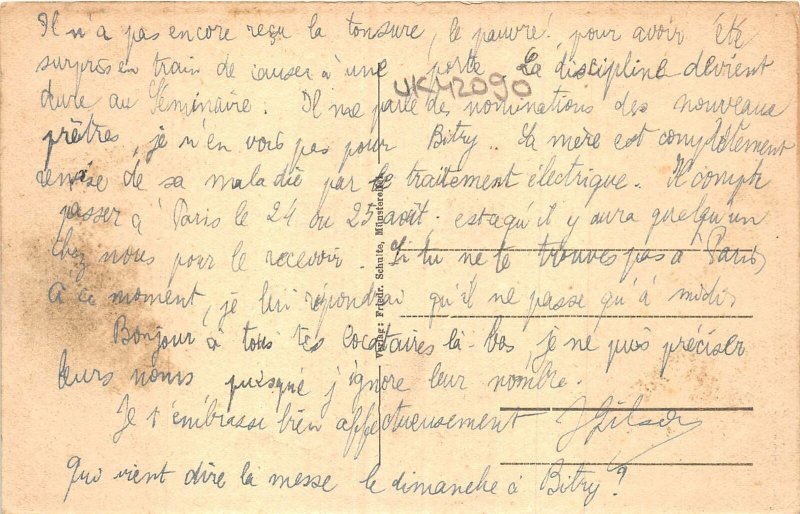 Il n'a pas encore reçu la tonsure, le pauvre! pour avoir été
surpris en train de causer à une porte La discipline devient
dure au Séminaire. Il me parle des nominations des nouveaux
prêtres, je n'en vois pas pour Bitry.. Sa mère est complètement
remise de sa maladie par le traitement électrique. Il compte
passer à Paris le 24 ou 25 août, est-ce qu'il y aura quelqu'un
chez nous pour le recevoir. Si tu ne te trouves pas à Paris,
à ce moment, je lui répondrai qu'il ne passe qu'à midi,
Bonjour à tous tes locataires là-bas, je ne puis préciser
leurs noms puisque j'ignore leur nombre.
Je t'embrasse bien affectueusement
Qui vient dire la messe le dimanche à Bitry?
UK42090
Verlag: Friedr. Schulte, Münstereifel